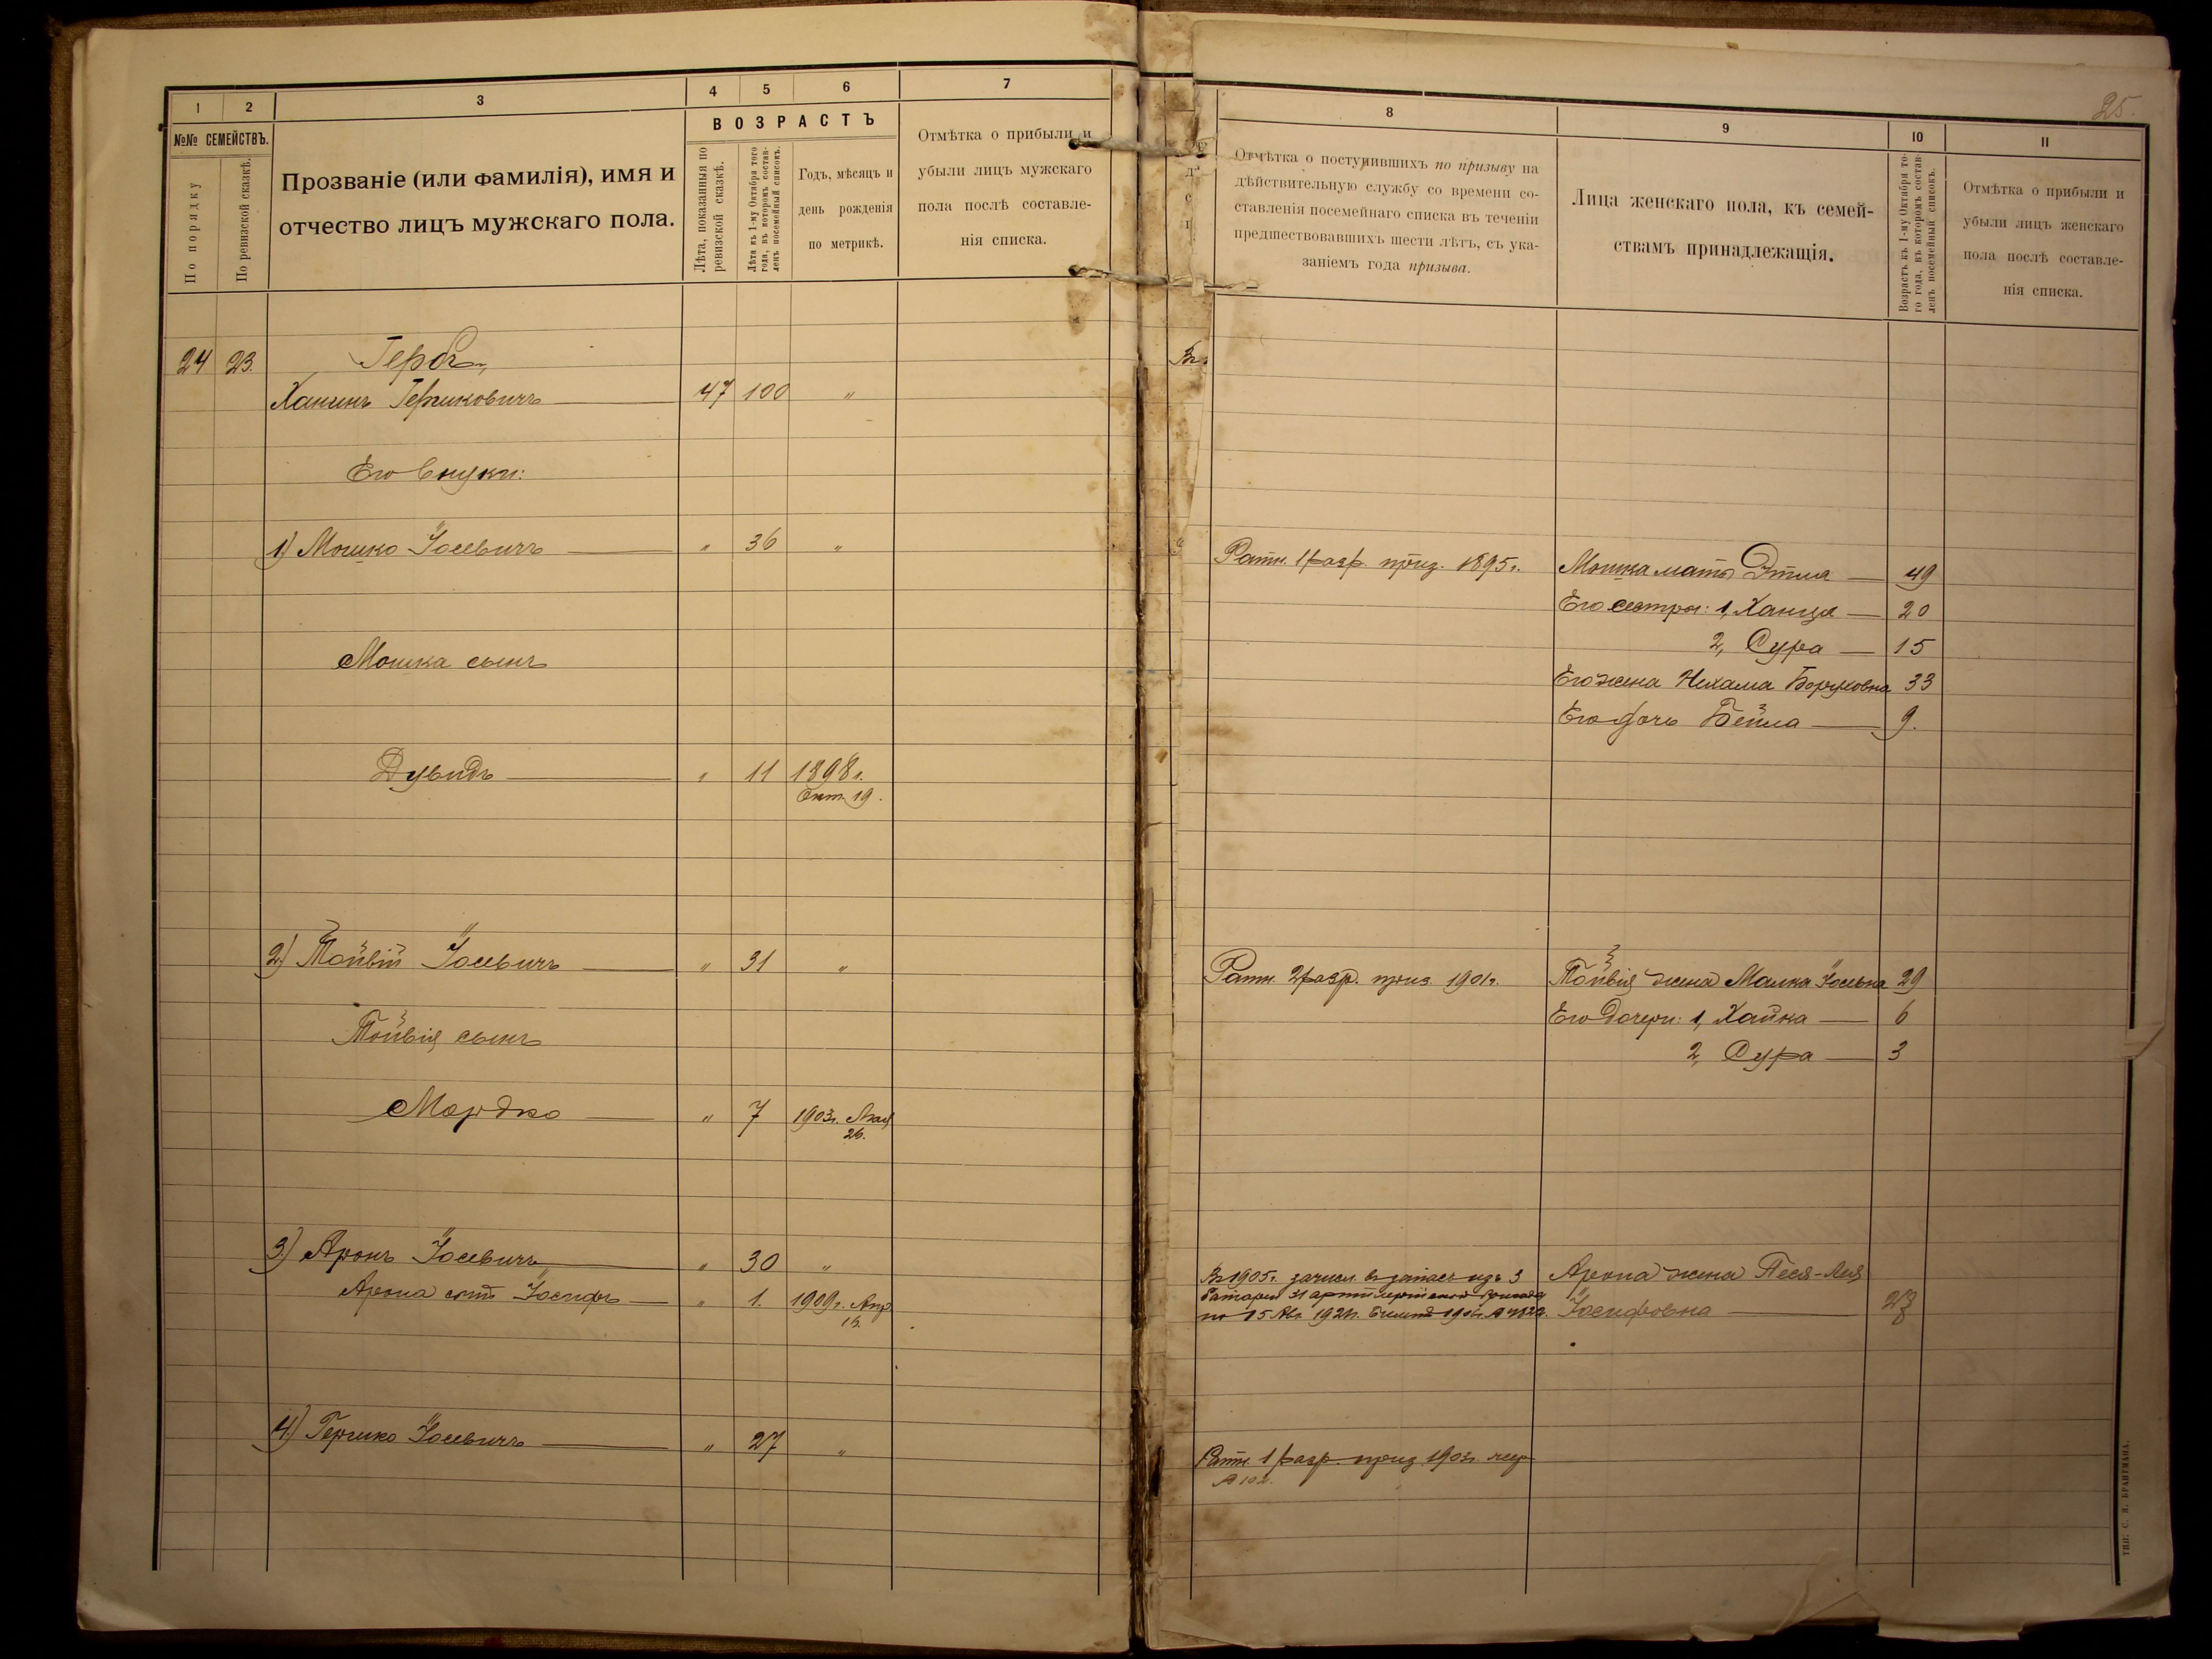 25.
1 2 3 4 5 6 7
№№ СЕМЕЙСТВЪ.
По порядку
По ревизской сказкѣ.
Прозваніе (или фамилія), имя и
отчество лицъ мужскаго пола.
ВОЗРАСТЪ
Лѣта, показанныя по
ревизской сказкѣ.
Лѣта къ 1-му Октября того
года, въ которомъ состав-
ленъ посемейный списокъ.
Годъ, мѣсяцъ и
день рожденія
по метрикѣ.
Отмѣтка о прибыли и
убыли лицъ мужскаго
пола послѣ составле-
нія списка.
24 23. Гербъ
Ханинъ Гершковичъ 47 100 "
Его внуки:
1) Мошко Іосевичъ " 36 "
Мошка сынъ
Дувидъ " 11 1898 г.
Окт. 19.
2) Тойвій Іосевичъ " 31 "
Тойвія сынъ
Мордко " 7 1903 г. Мая
26.
3) Аронъ Іосевичъ " 30 "
Арона сынъ Іосифъ " 1. 1909 г. Апр.
4) Гершко Іосевичъ " 27 "
8 9 10 11
Отмѣтка о поступившихъ по призыву на
дѣйствительную службу со времени со-
ставленія посемейнаго списка въ теченіи
предшествовавшихъ шести лѣтъ, съ ука-
заніемъ года призыва.
Лица женскаго пола, къ семей-
ствамъ принадлежащія.
Возрастъ къ 1-му Октября то-
го года, въ которомъ состав-
ленъ посемейный списокъ.
Отмѣтка о прибыли и
убыли лицъ женскаго
пола послѣ составле-
нія списка.
Ратн. 1 разр. приз. 1895 г. Мошка мать Этля 49
Его сестры: 1, Ханця 20
2, Сура 15
Его жена Нехама Боруховна 33
Его дочь Бейла 9.
Ратн. 2 разр. приз. 1901 г. Тойвія жена Малка Іосевна 29
Его дочери: 1, Хайка 6
2, Сура 3
Въ 1905 г. зачисл. въ запасъ изъ 3 Арона жена Песя-Лея
батареи 31 артиллерійской бригады
по 15 Авг. Іосифовна
Ратн. 1 разр. приз. 1903 г.
ТИП. С. Н. БРАНТМАНА.